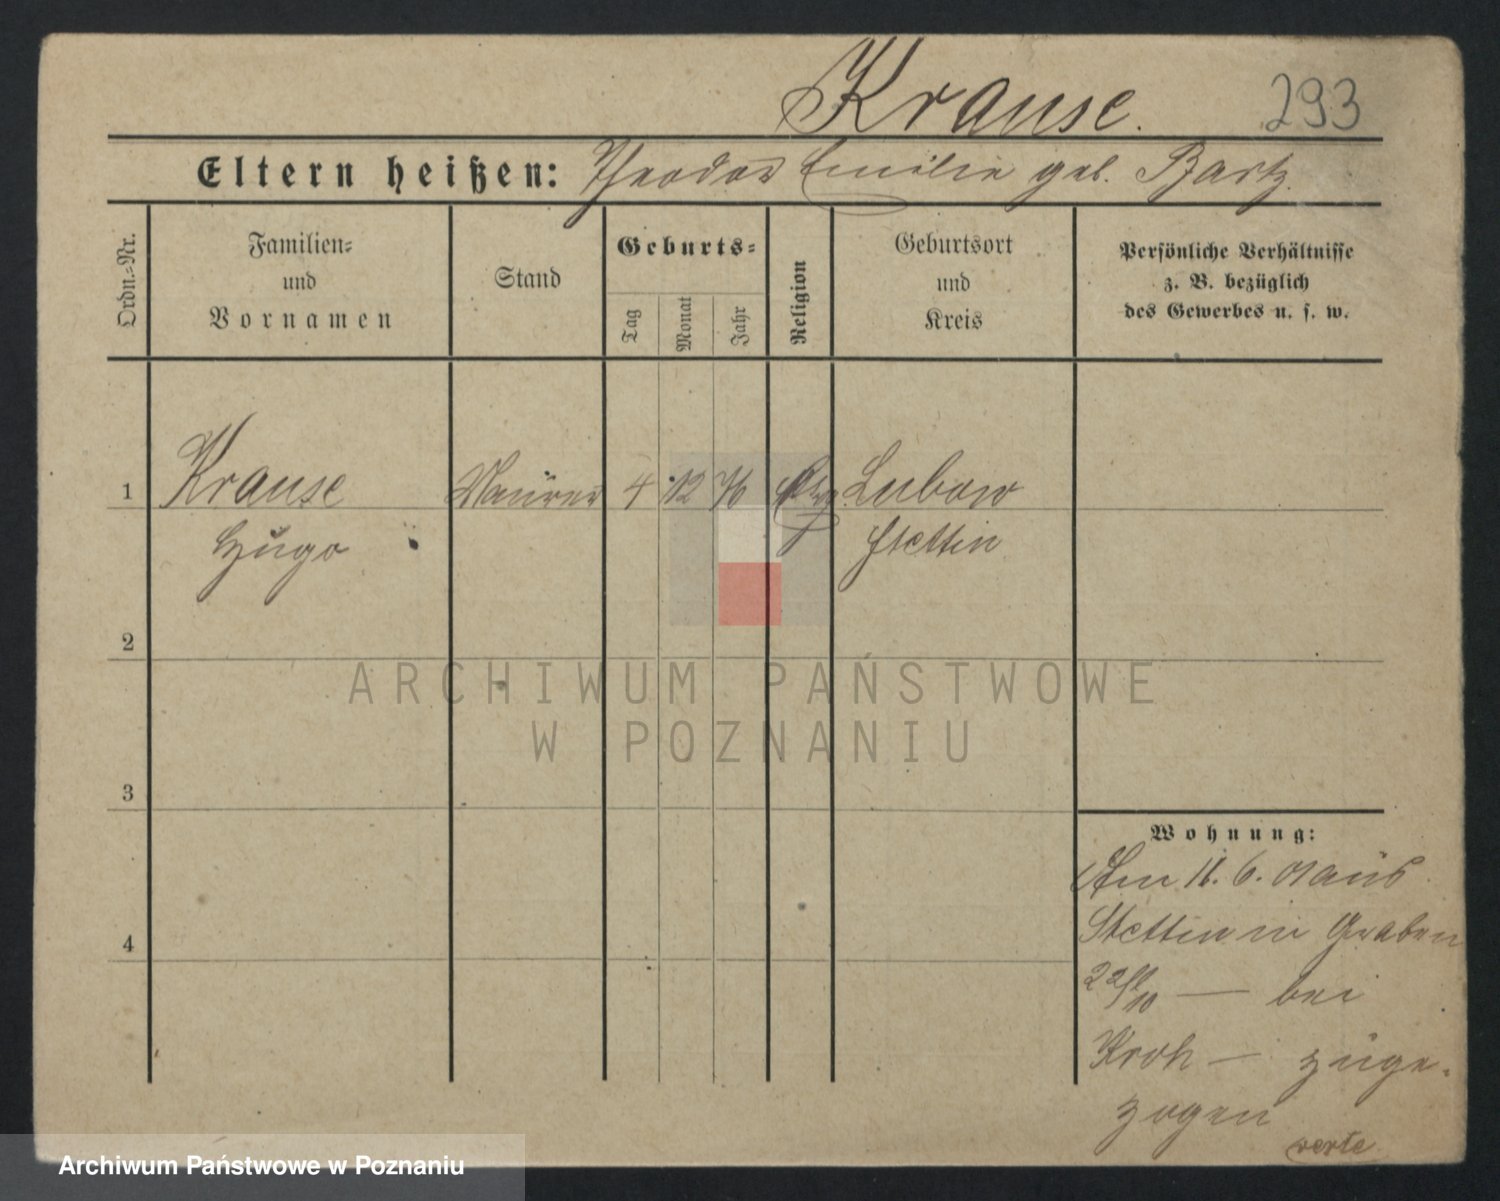 Krause. 293
Eltern heißen: Theodor Emilie geb. Bartz.
Ordn.-Nr.
Familien-
und
Vornamen
Stand
Geburts-
Tag
Monat
Jahr
Religion
Geburtsort
und
Kreis
Persönliche Verhältnisse
z. B. bezüglich
des Gewerbes u. s. w.
1 Krause Maurer 4 12 76 Evg. Lubow
Hugo Stettin
2
ARCHIWUM PAŃSTWOWE
W POZNANIU
3
Wohnung:
Am 11. 6. 01 aus
4 Stettin in Graben
bei
Kroh — zuge-
zogen
verte
Archiwum Państwowe w Poznaniu